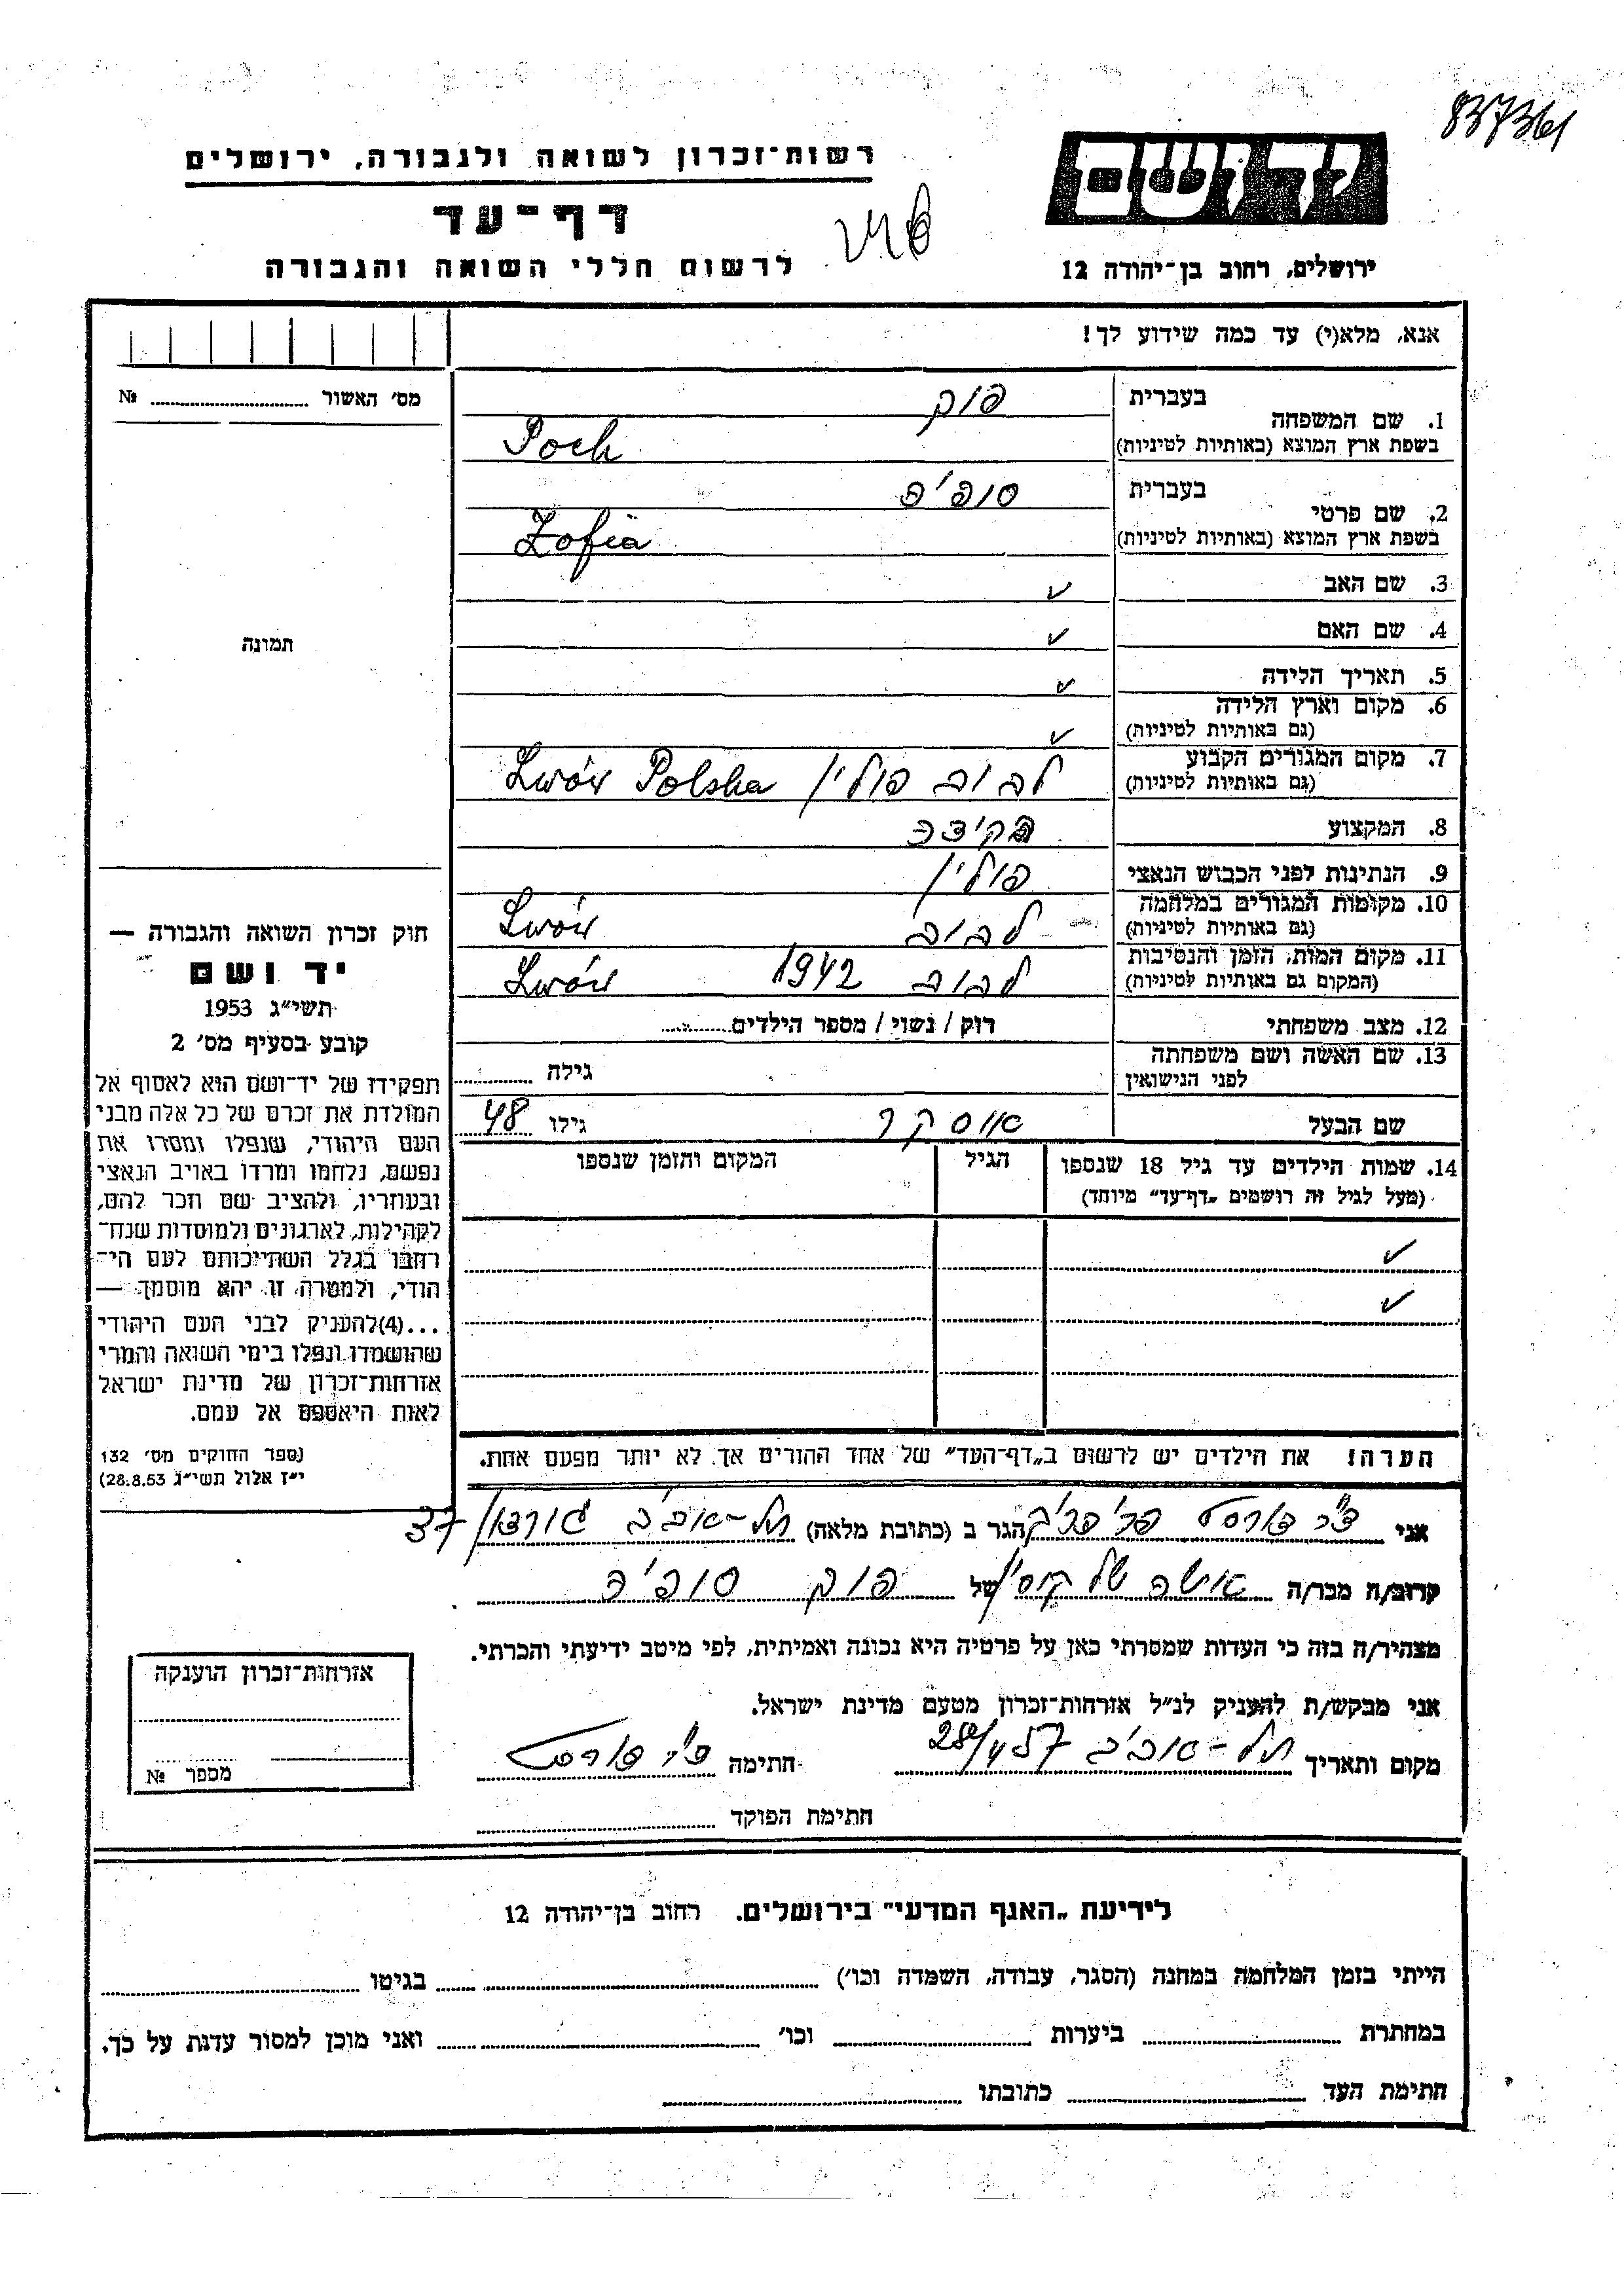 837361
יד ושם
רשות־זכרון לשואה ולגבורה, ירושלים
דף־עד
לרשום חללי השואה והגבורה
ירושלים, רחוב בן־יהודה 12
אנא, מלא(י) עד כמה שידוע לך!
מס' האשור № ........
תמונה
1. שם המשפחה
בעברית פוק
בשפת ארץ המוצא (באותיות לטיניות) Poch
2. שם פרטי
בעברית סופיה
בשפת ארץ המוצא (באותיות לטיניות) Zofia
3. שם האב ✓
4. שם האם ✓
5. תאריך הלידה ✓
6. מקום וארץ הלידה
(גם באותיות לטיניות) ✓
7. מקום המגורים הקבוע
(גם באותיות לטיניות) לבוב פולין Lwów Polska
8. המקצוע פקידה
9. הנתינות לפני הכבוש הנאצי פולין
10. מקומות המגורים במלחמה
(גם באותיות לטיניות) לבוב Lwów
11. מקום המות, הזמן והנסיבות
(המקום גם באותיות לטיניות) לבוב 1942 Lwów
12. מצב משפחתי רוק / נשוי / מספר הילדים........
13. שם האשה ושם משפחתה
לפני הנישואין גילה ........
שם הבעל אוסקר גילו 48
14. שמות הילדים עד גיל 18 שנספו הגיל המקום והזמן שנספו
(מעל לגיל זה רושמים „דף־עד" מיוחד)
✓
✓
הערה! את הילדים יש לרשום ב„דף־העד" של אחד ההורים אך לא יותר מפעם אחת.
חוק זכרון השואה והגבורה —
יד ושם
תשי"ג 1953
קובע בסעיף מס' 2
תפקידו של יד־ושם הוא לאסוף אל
המולדת את זכרם של כל אלה מבני
העם היהודי, שנפלו ומסרו את
נפשם, נלחמו ומרדו באויב הנאצי
ובעוזריו, ולהציב שם וזכר להם,
לקהילות, לארגונים ולמוסדות שנח־
רחבו בגלל השתייכותם לעם הי־
הודי, ולמטרה זו יהא מוסמך —
...(4)להעניק לבני העם היהודי
שהושמדו ונפלו בימי השואה והמרי
אזרחות־זכרון של מדינת ישראל
לאות היאספם אל עמם.
(ספר החוקים מס' 132
י"ז אלול תשי"ג 28.8.53)
אני הגר ב (כתובת מלאה) תל-אביב גורדון 37
קרוב/ה מכר/ה אשה של קוזין של פוק סופיה
מצהיר/ה בזה כי העדות שמסרתי כאן על פרטיה היא נכונה ואמיתית, לפי מיטב ידיעתי והכרתי.
אני מבקש/ת להעניק לנ"ל אזרחות־זכרון מטעם מדינת ישראל.
מקום ותאריך תל-אביב 28/4 57 חתימה
חתימת הפוקד ........
אזרחות־זכרון הוענקה
מספר №
לידיעת „האגף המדעי" בירושלים. רחוב בן־יהודה 12
הייתי בזמן המלחמה במחנה (הסגר, עבודה, השמדה וכו') ........ בגיטו ........
במחתרת ........ ביערות ........ וכו' ........ ואני מוכן למסור עדות על כך.
חתימת העד ........ כתובתו ........